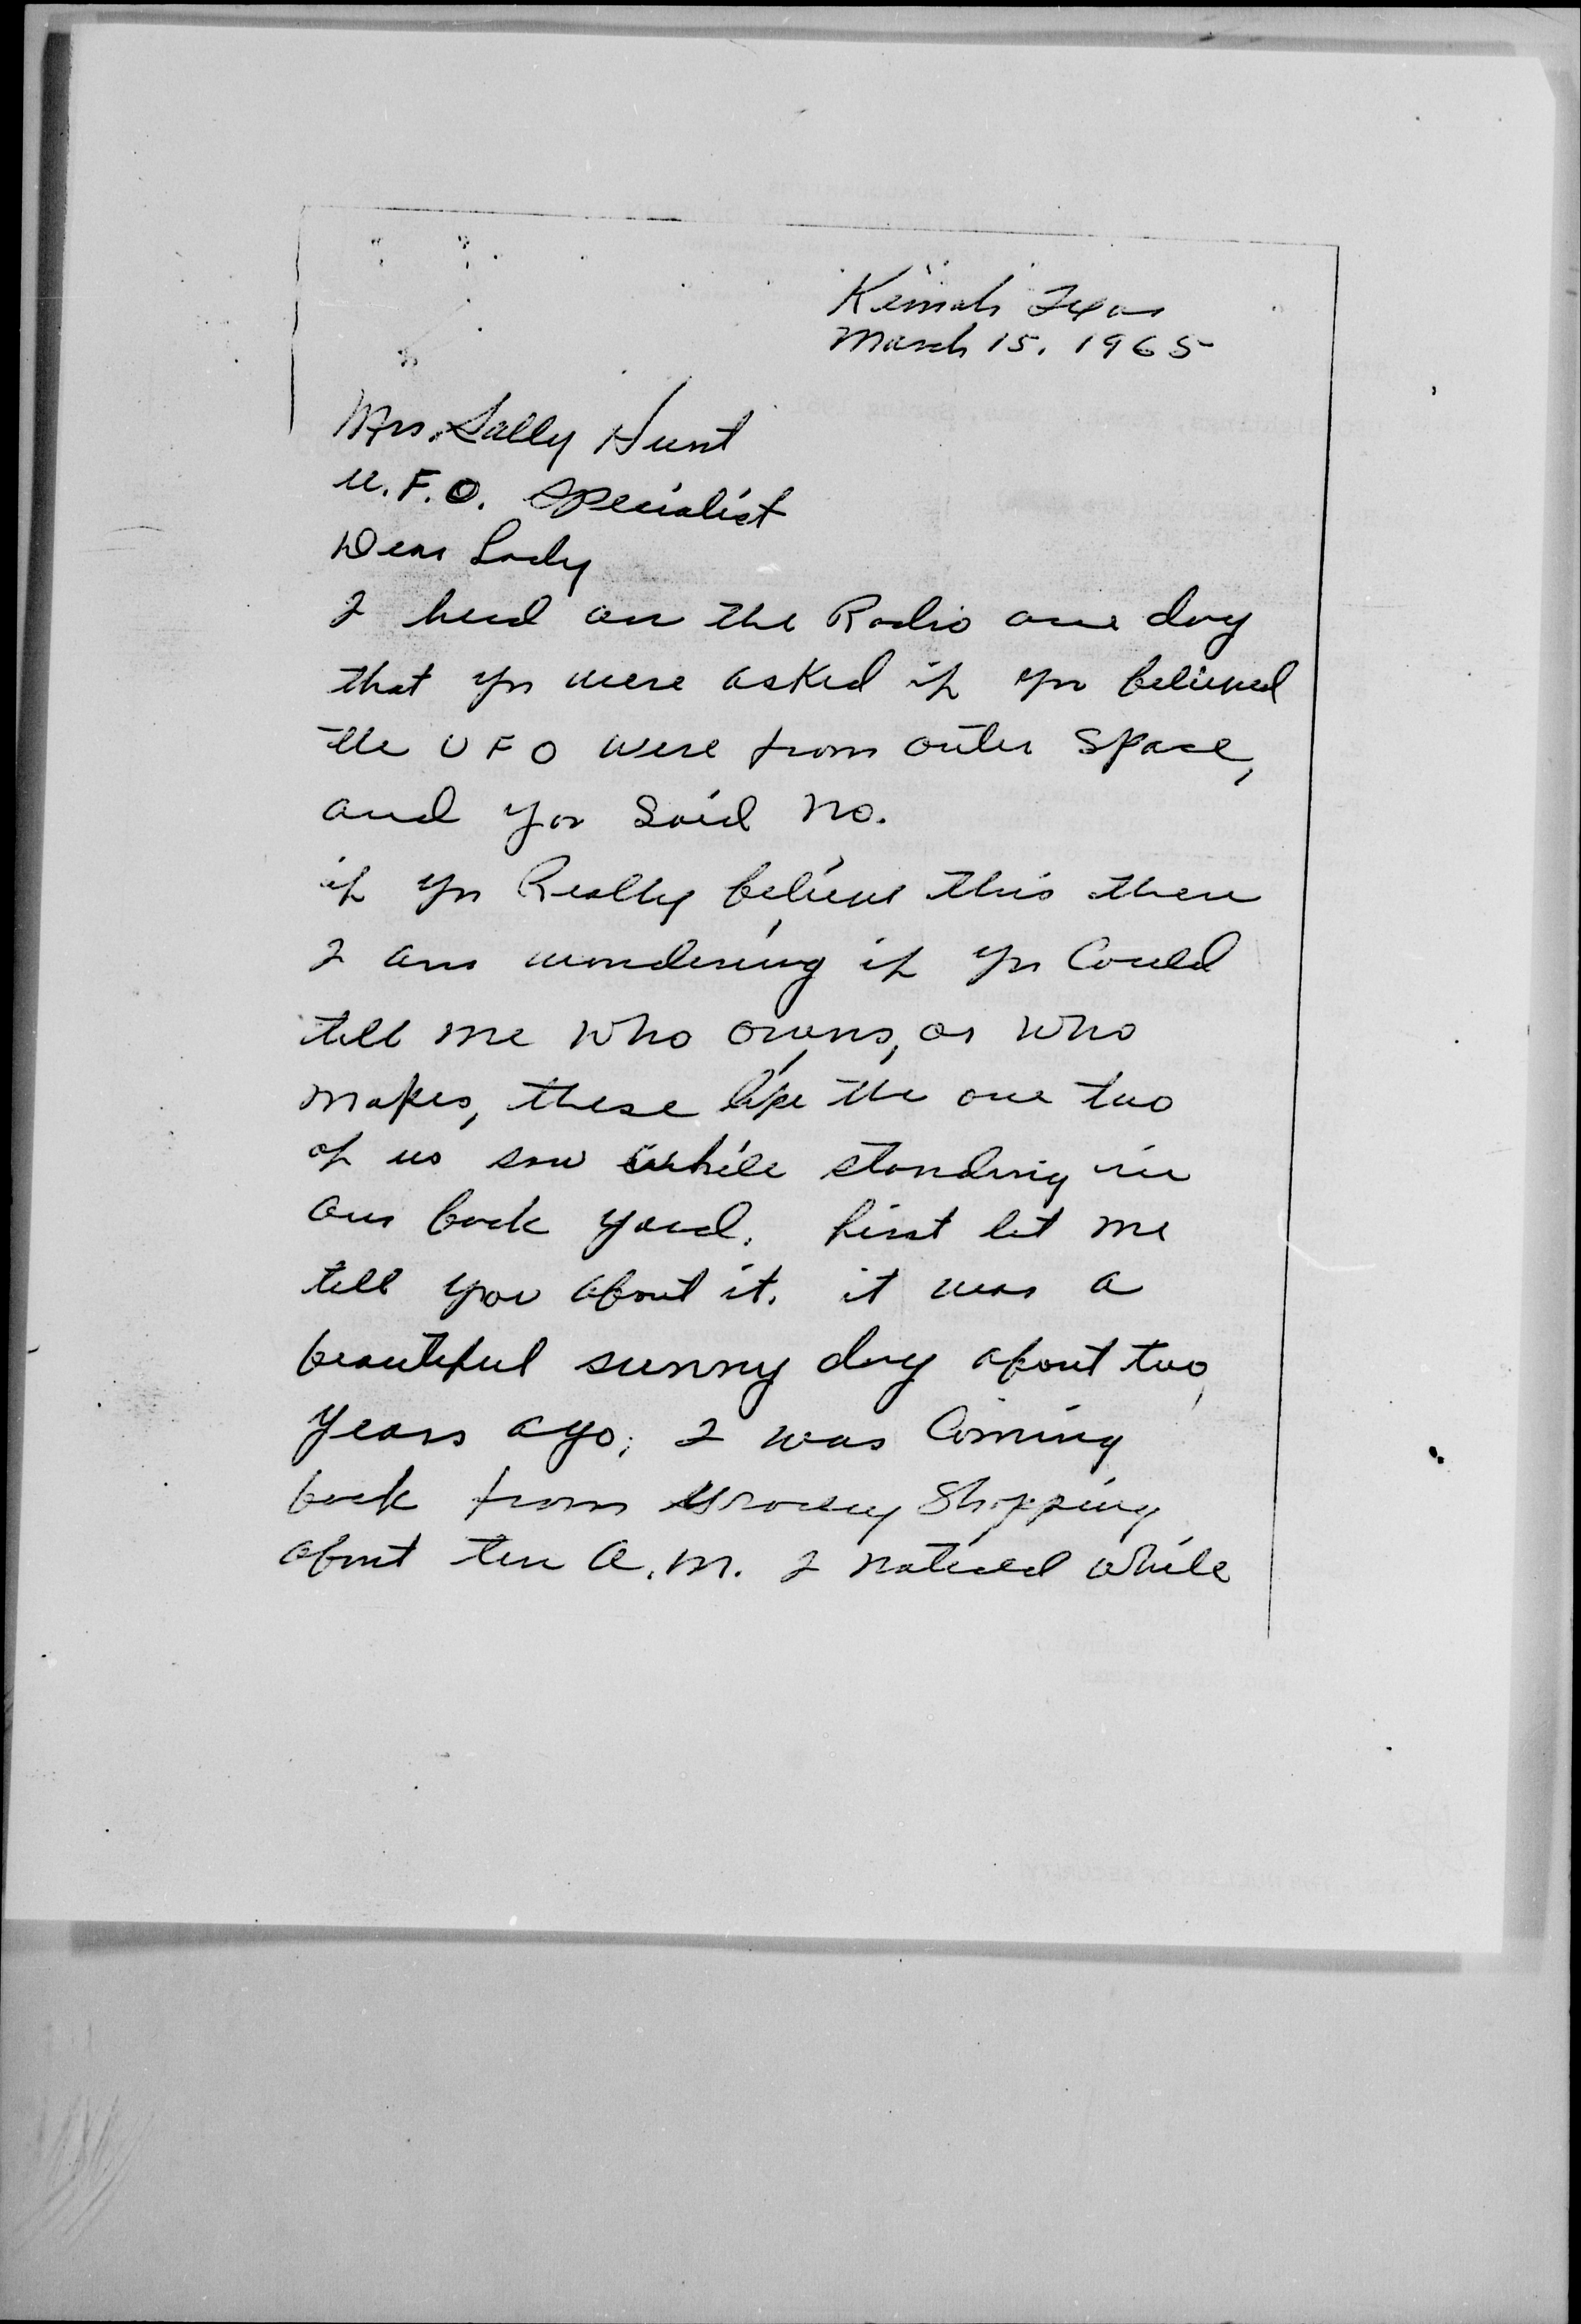 Kemah Texas
March 15, 1965
Mrs. Sally Hunt
U.F.O. Specialist
Dear Lady
I head on the Radio one day
that you were asked if you believed
the UFO were from outer space,
and you said no.
if you Really believe this then
I am wondering if you Could
tell me who owns, or who
makes, these like the one two
of us saw while standing in
our back yard. first let me
tell you about it. it was a
beautiful sunny day about two
years ago, I was Coming
back from Grocery Shopping
about ten A.M. I noticed while